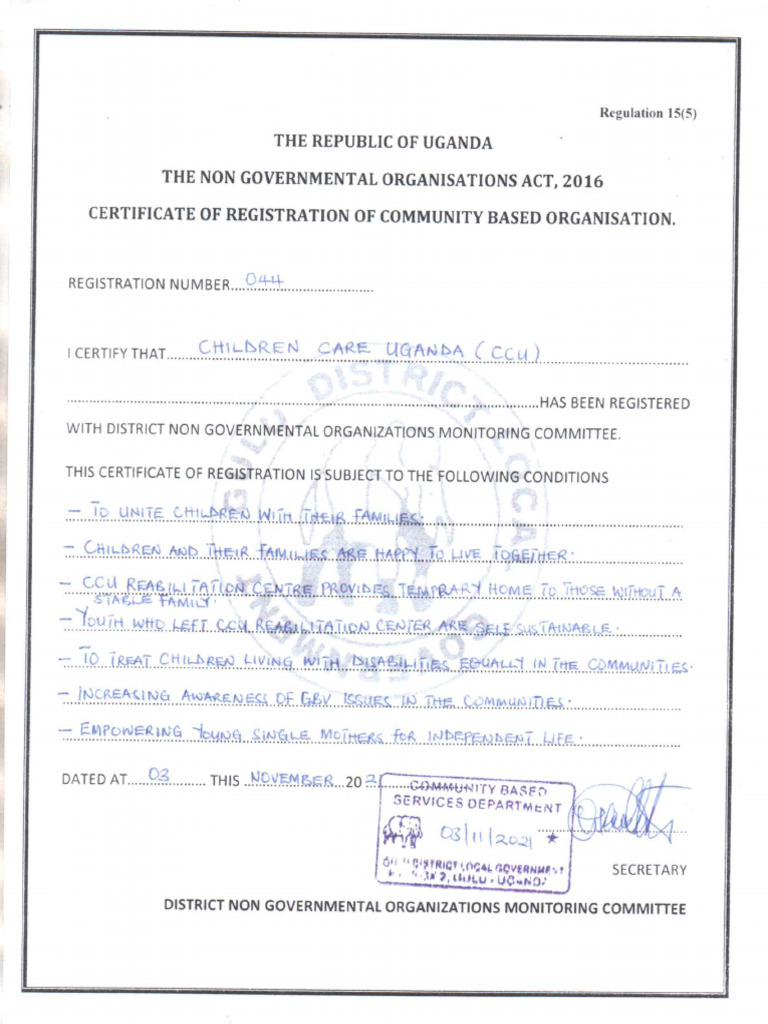 Regulation 15(5)
THE REPUBLIC OF UGANDA
THE NON GOVERNMENTAL ORGANISATIONS ACT, 2016
CERTIFICATE OF REGISTRATION OF COMMUNITY BASED ORGANISATION.
REGISTRATION NUMBER...044
I CERTIFY THAT...CHILDREN CARE UGANDA (CCU)
...HAS BEEN REGISTERED
WITH DISTRICT NON GOVERNMENTAL ORGANIZATIONS MONITORING COMMITTEE.
THIS CERTIFICATE OF REGISTRATION IS SUBJECT TO THE FOLLOWING CONDITIONS
GULU DISTRICT LOCAL GOVERNMENT
- TO UNITE CHILDREN WITH THEIR FAMILIES.
- CHILDREN AND THEIR FAMILIES ARE HAPPY TO LIVE TOGETHER.
- CCU REABILITATION CENTRE PROVIDES TEMPRARY HOME TO THOSE WITHOUT A
STABLE FAMILY.
- YOUTH WHO LEFT CCU REABILITATION CENTER ARE SELF SUSTAINABLE.
- TO TREAT CHILDREN LIVING WITH DISABILITIES EQUALLY IN THE COMMUNITIES.
- INCREASING AWARENESS OF GBV ISSUES IN THE COMMUNITIES.
- EMPOWERING YOUNG SINGLE MOTHERS FOR INDEPENDENT LIFE.
DATED AT...03 THIS NOVEMBER 2021
COMMUNITY BASED
SERVICES DEPARTMENT
03/11/2021
DISTRICT LOCAL GOVERNMENT
GULU - UGANDA
SECRETARY
DISTRICT NON GOVERNMENTAL ORGANIZATIONS MONITORING COMMITTEE